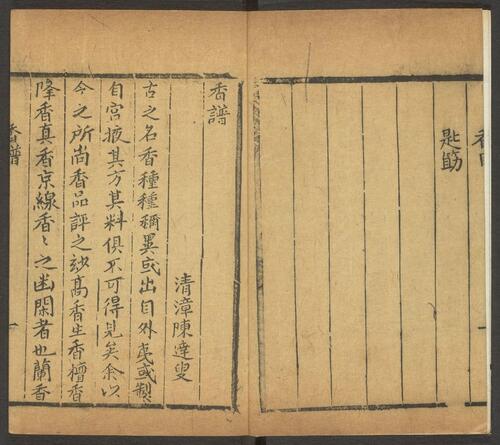 匙筯
香譜
清漳陳達叟
古之名香種種稱異或出自外夷或製
自宮掖其方其料俱不可得見矣余以
今之所尚香品評之玅高香生香檀香
降香真香京線香〻之幽閑者也蘭香
香譜
一